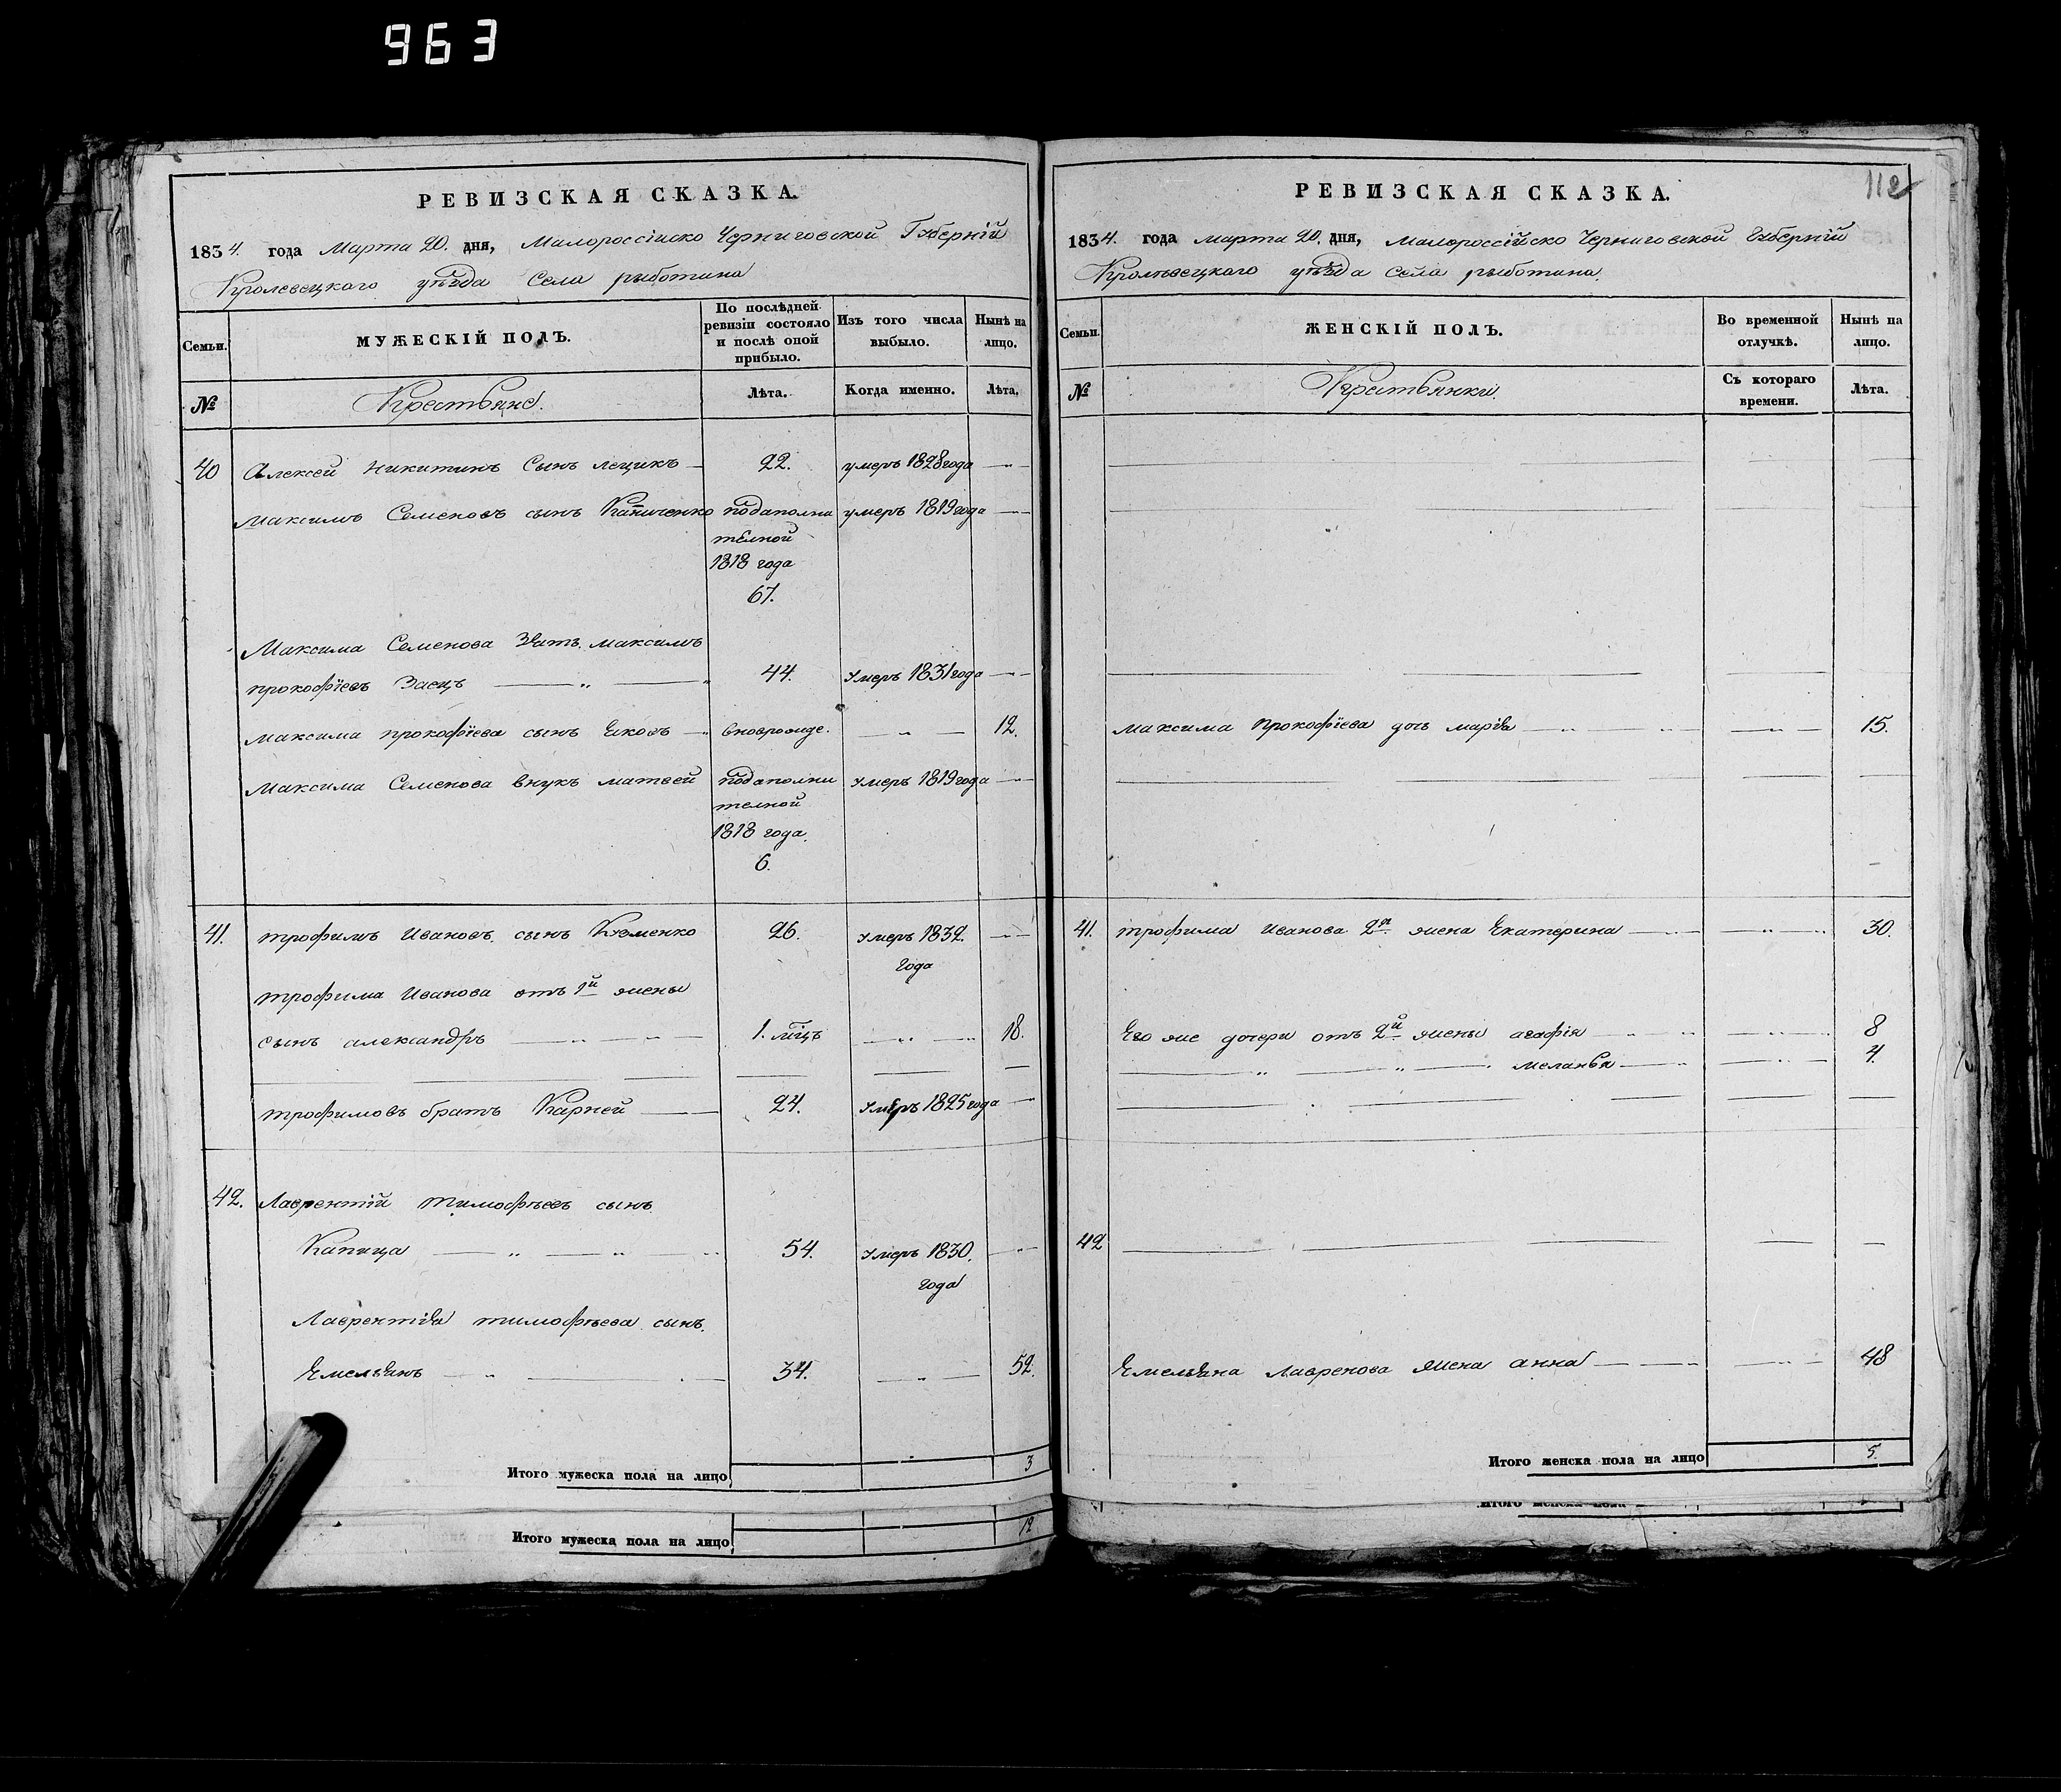 963
РЕВИЗСКАЯ СКАЗКА.
1834. года Марта 20. дня, Малороссійско Черниговской Губерній
Кролевецкого уѣзда Села рыботина
Семьи.
МУЖЕСКІЙ ПОЛЪ.
По послѣдней ревизіи состояло и послѣ оной прибыло.
Изъ того числа выбыло.
Нынѣ на лицо.
№
Крестьяне.
Лѣта.
Когда именно.
Лѣта.
40 Алексей Никитинъ Сынъ лецикъ 22. умеръ 1828 года
Максимъ Семеновъ сынъ подаполни умеръ 1819 года
телной
1818 года
67.
Максима Семенова Зять максимъ
прокофїевъ Заецъ 44. умеръ 1831 года
максима прокофїева сынъ вноврожде. 12.
Максима Семенова внукъ матвей подаполни умеръ 1819 года
телной
1818 года.
6.
41. трофимъ Ивановъ сынъ 26. умеръ 1832.
года
трофима Иванова отъ 1й жены
сынъ александръ 1. мїцъ 18.
трофимовъ братъ Карней 24. умеръ 1825 года
42. Лаврентій тимофѣевъ сынъ
Капица 54. умеръ 1830.
года
Лаврентія тимофѣева сынъ.
Емельянъ 34. 52.
Итого мужеска пола на лицо 3
Итого мужеска пола на лицо 12
112
РЕВИЗСКАЯ СКАЗКА.
1834. года марта 20. дня, малороссійско Черниговской Губерній
Кролѣвецкаго уѣзда Села рыботина.
Семьи.
ЖЕНСКІЙ ПОЛЪ.
Во временной отлучкѣ.
Нынѣ на лицо.
№
Крестьянки.
Съ котораго времени.
Лѣта.
максима Прокофїева дочь марія 15.
41. трофима Иванова 2я жена Екатерина 30.
Его же дочери отъ 2й жены агафія 8
меланья 4.
42
Емельяна Лавренова жена анна 48
Итого женска пола на лицо 5.